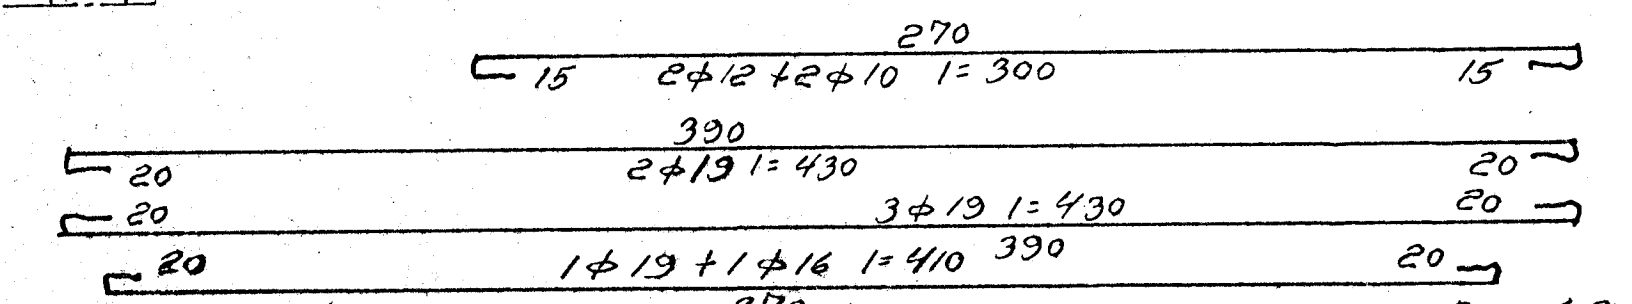 270
15 2ϕ12 + 2ϕ10 l=300 15
390
20 2ϕ19 l=430 20
20 3ϕ19 l=430 20
390
20 1ϕ19 + 1ϕ16 l=410 20